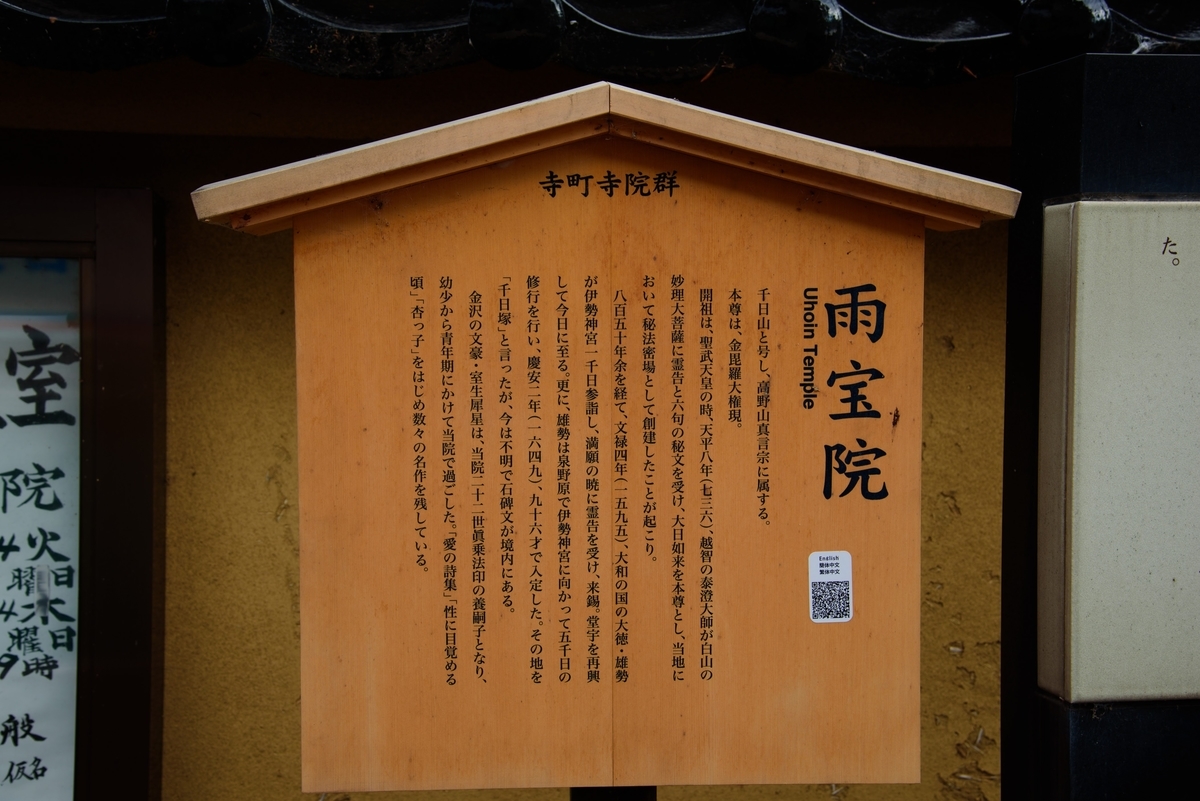 寺町寺院群
雨宝院
Uhoin Temple
千日山と号し、高野山真言宗に属する。
本尊は、金毘羅大権現。
開祖は、聖武天皇の時、天平八年(七三六)、越智の泰澄大師が白山の
妙理大菩薩に霊告と六句の秘文を受け、大日如来を本尊とし、当地に
おいて秘法密場として創建したことが起こり。
八百五十年余を経て、文禄四年(一五九五)、大和の国の大徳・雄勢
が伊勢神宮一千日参詣し、満願の暁に霊告を受け、来錫。堂宇を再興
して今日に至る。更に、雄勢は泉野原で伊勢神宮に向かって五千日の
修行を行い、慶安二年(一六四九)、九十六才で入定した。その地を
「千日塚」と言ったが、今は不明で石碑文が境内にある。
金沢の文豪・室生犀星は、当院二十二世眞乗法印の養嗣子となり、
幼少から青年期にかけて当院で過ごした。「愛の詩集」「性に目覚める
頃」「杏っ子」をはじめ数々の名作を残している。
English
簡体中文
繁体中文
た。
室
院
火曜日
木曜日
9時
般
仮名